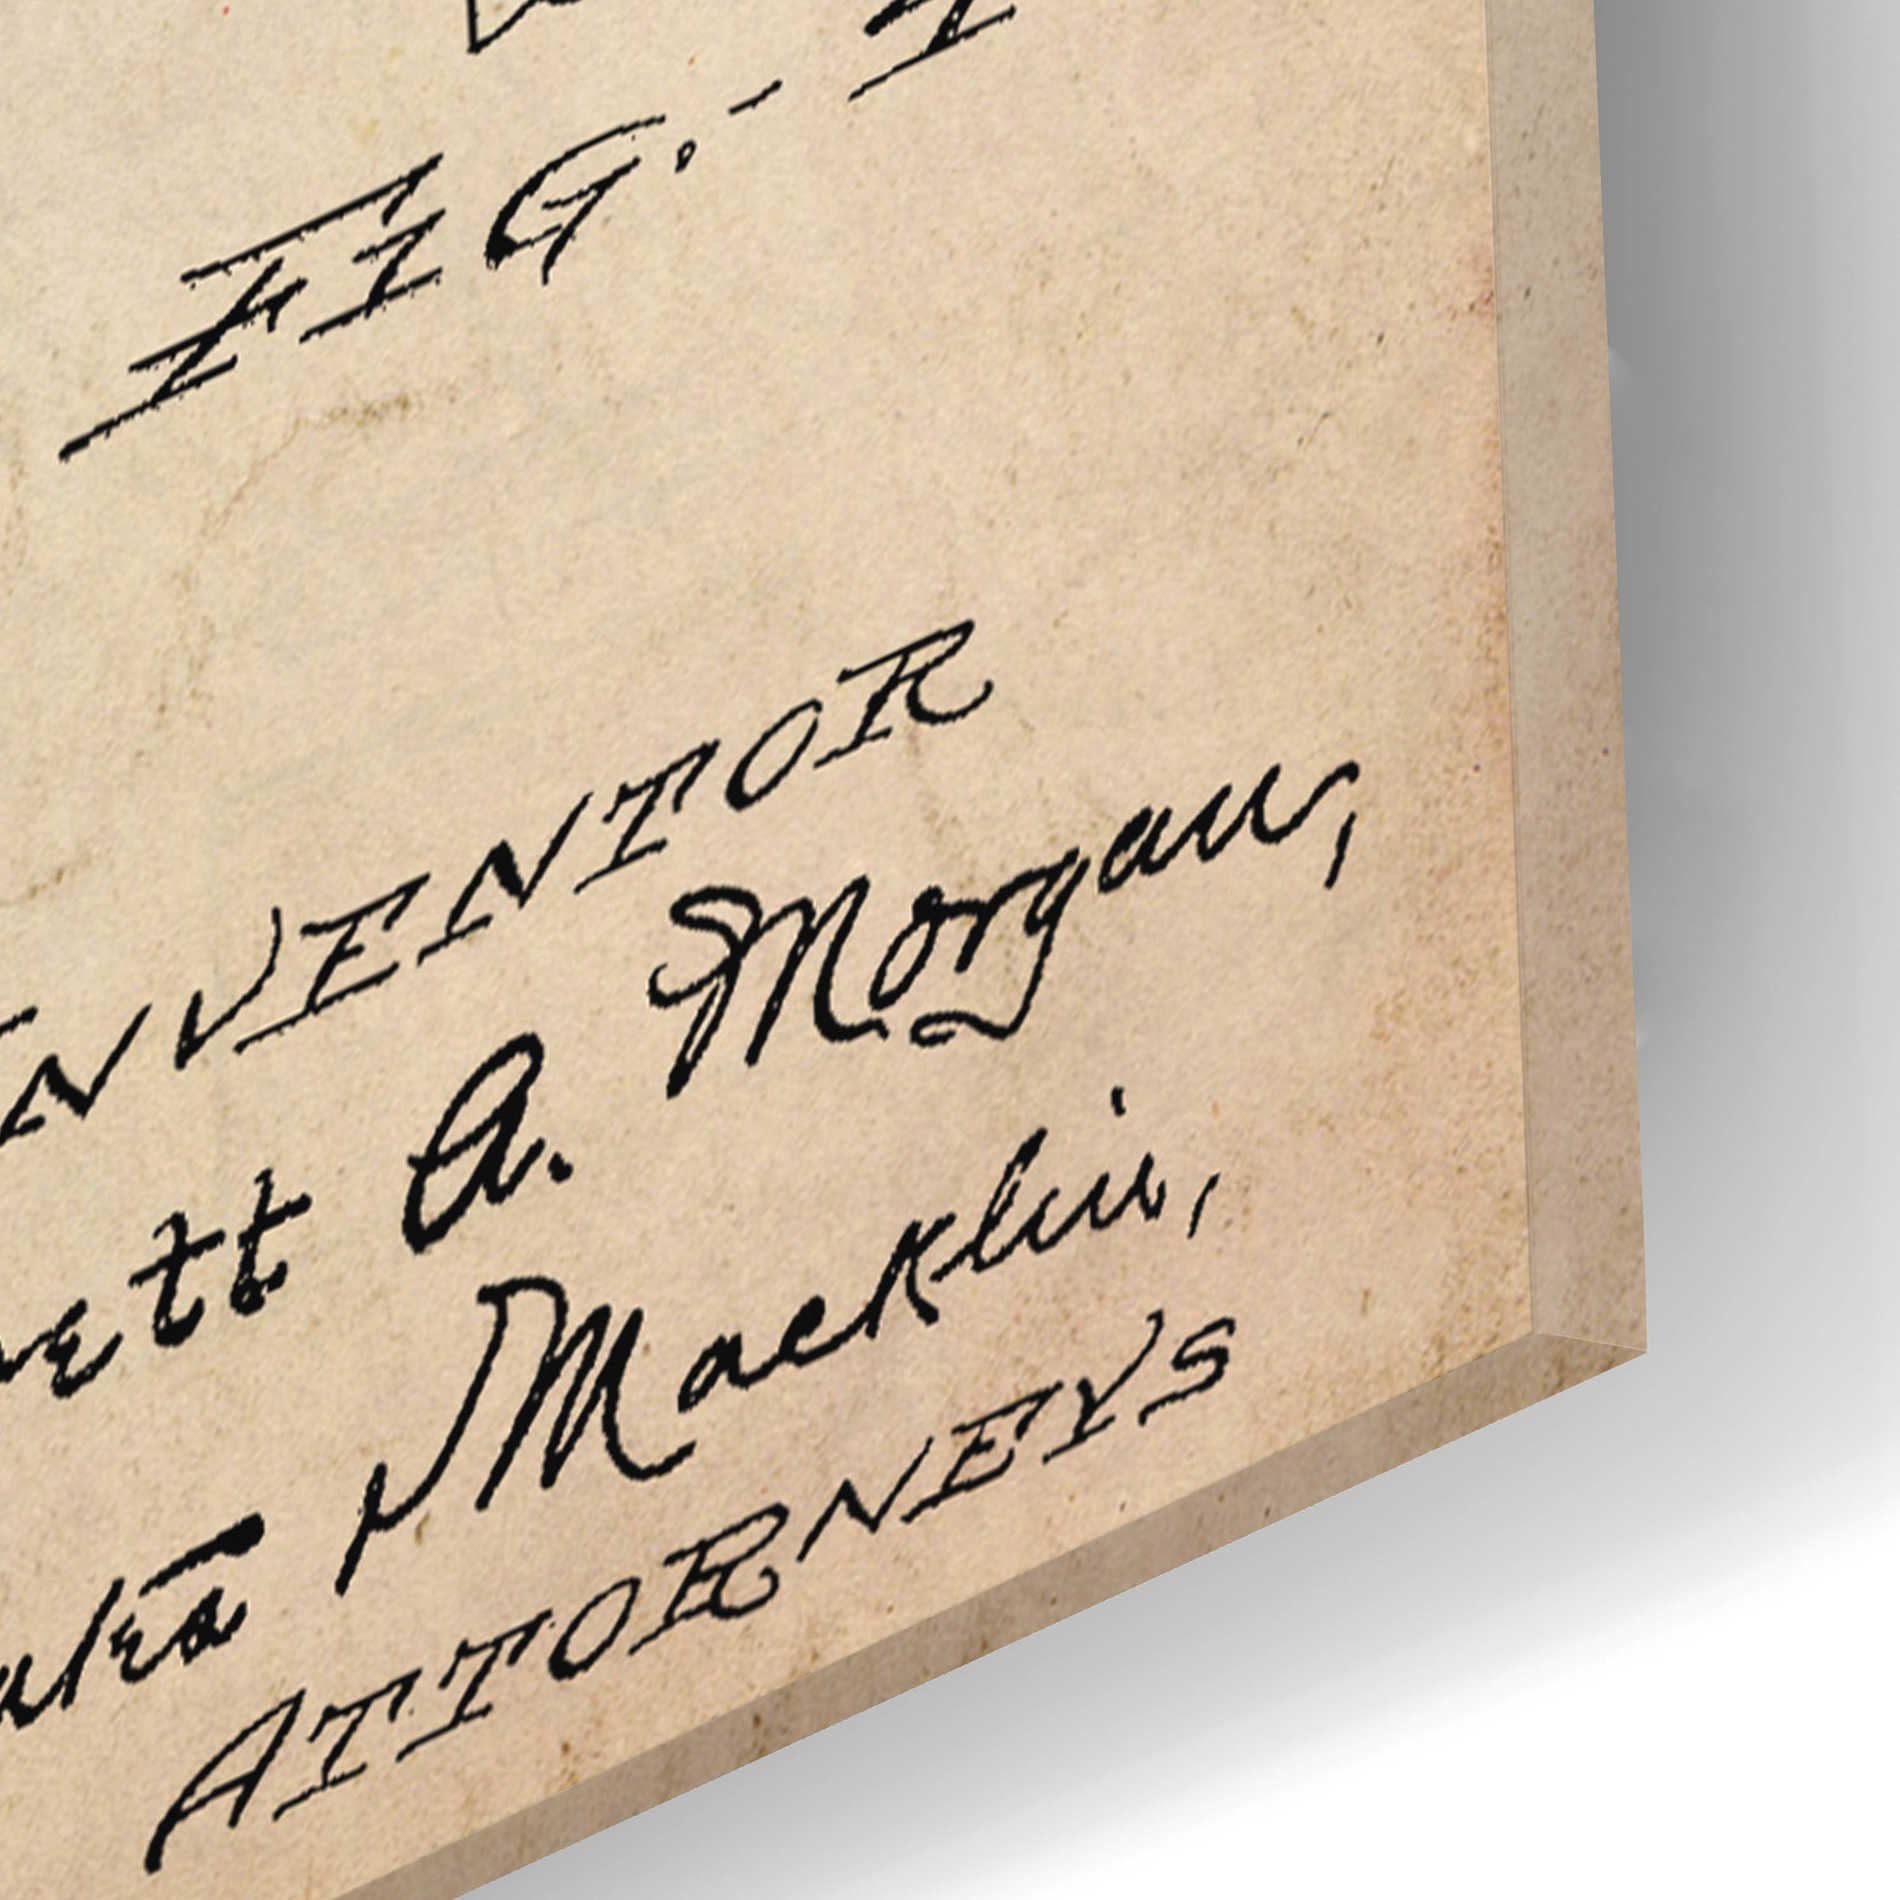 FIG.-1
INVENTOR
ett A. Morgan,
Macklin,
ATTORNEYS